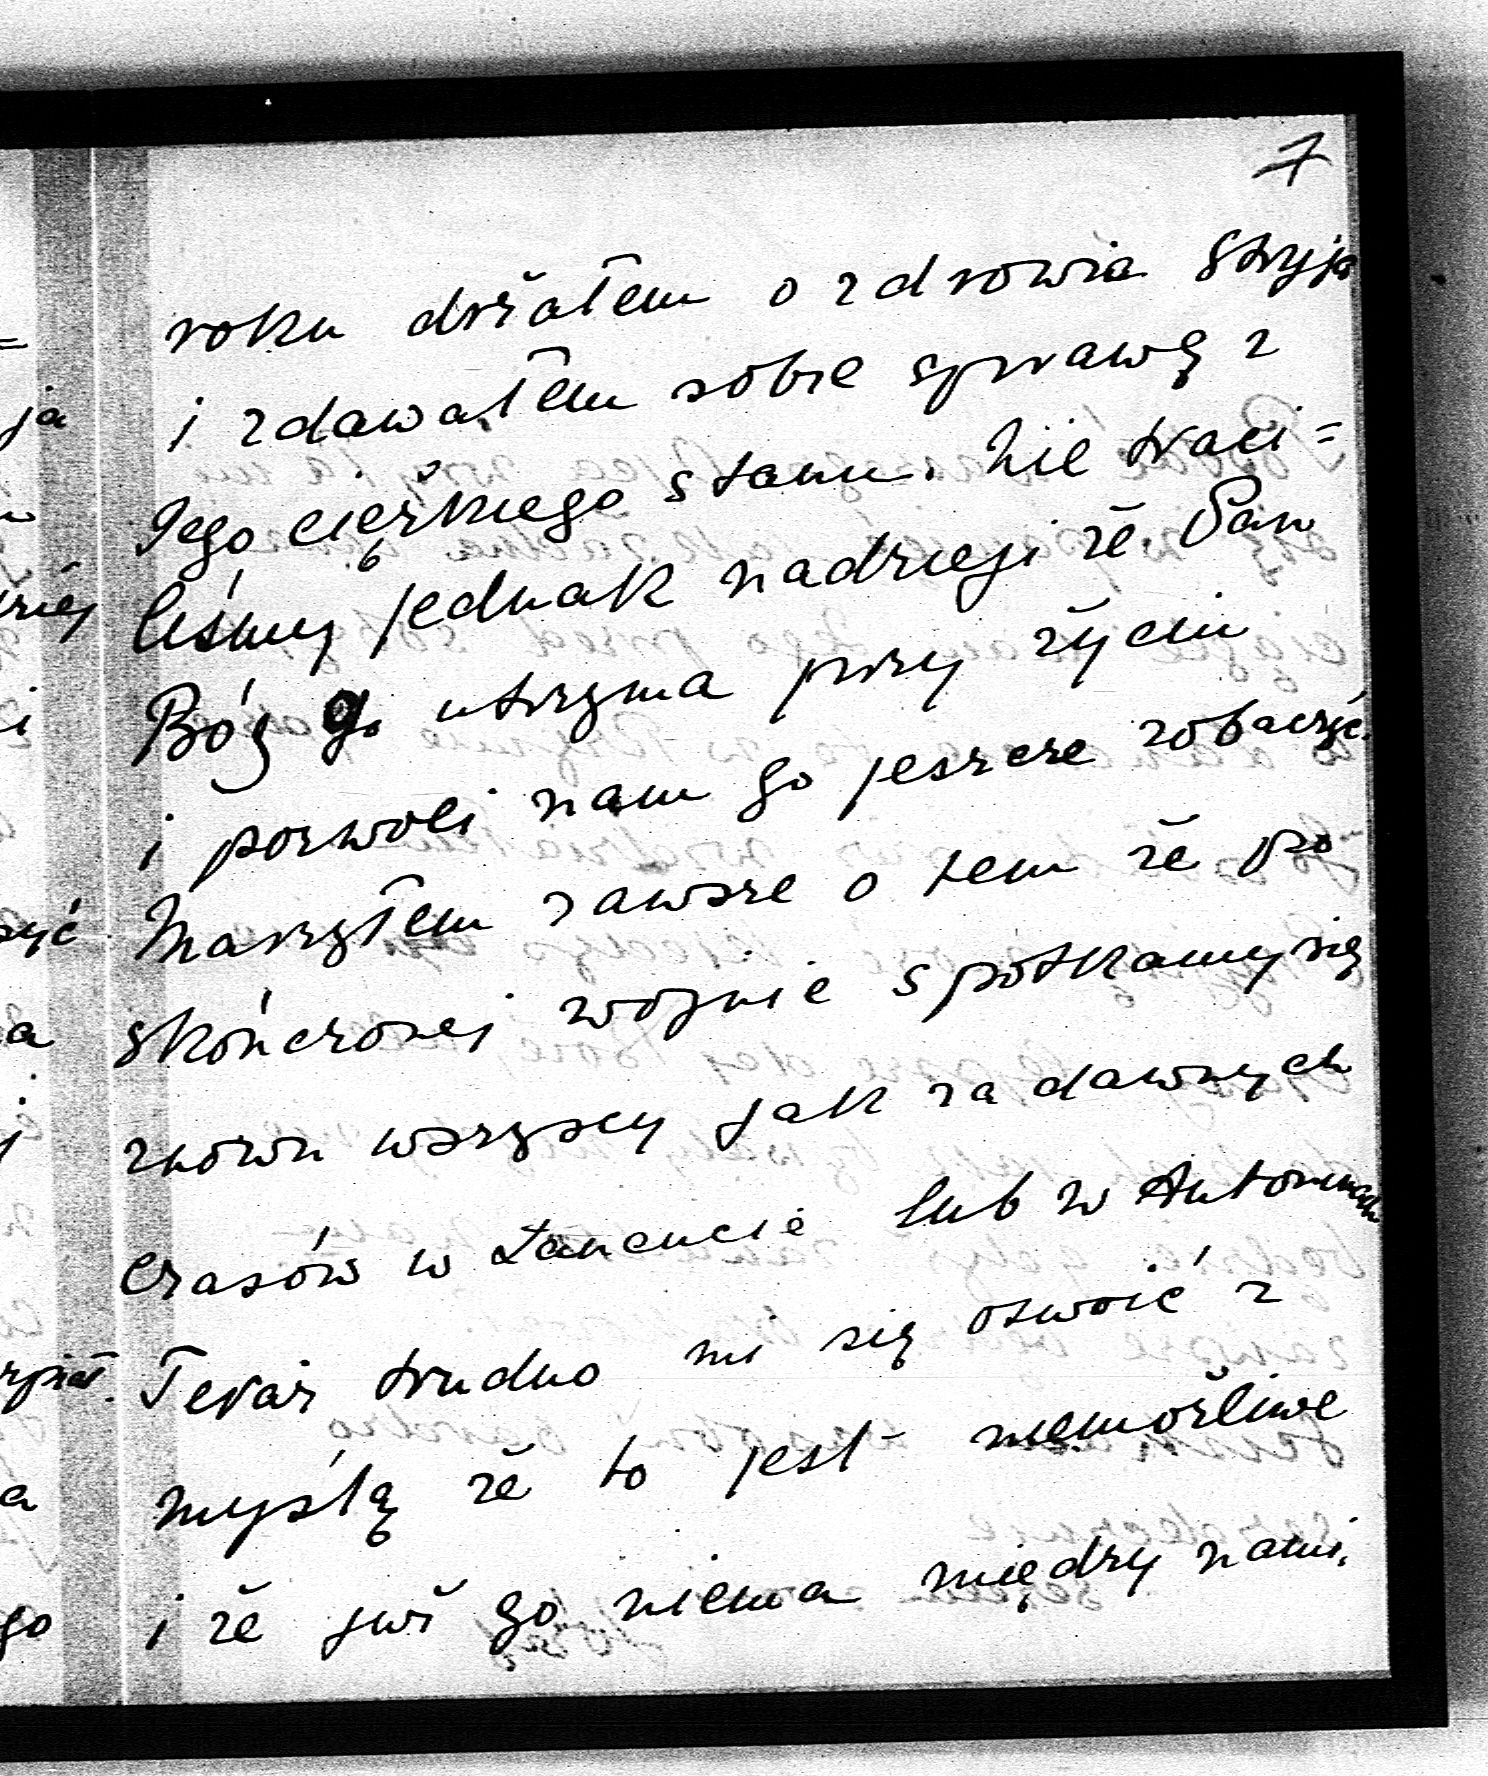 7
roku drżałem o zdrowia Stryja
i zdawałem sobie sprawę z
Jego ciężkiego stanu. Nie traci=
liśmy jednak nadzieji że Pan
Bóg go utrzyma przy życiu
i pozwoli nam go jeszcze zobaczyć.
Marzyłem zawsze o tem że po
skończonej wojnie spotkamy się
znowu wszyscy jak za dawnych
czasów w Łancucie lub w Antoninach
Teraz trudno mi się oswoić z
myślą że to jest niemożliwe
i że już go niema między nami.